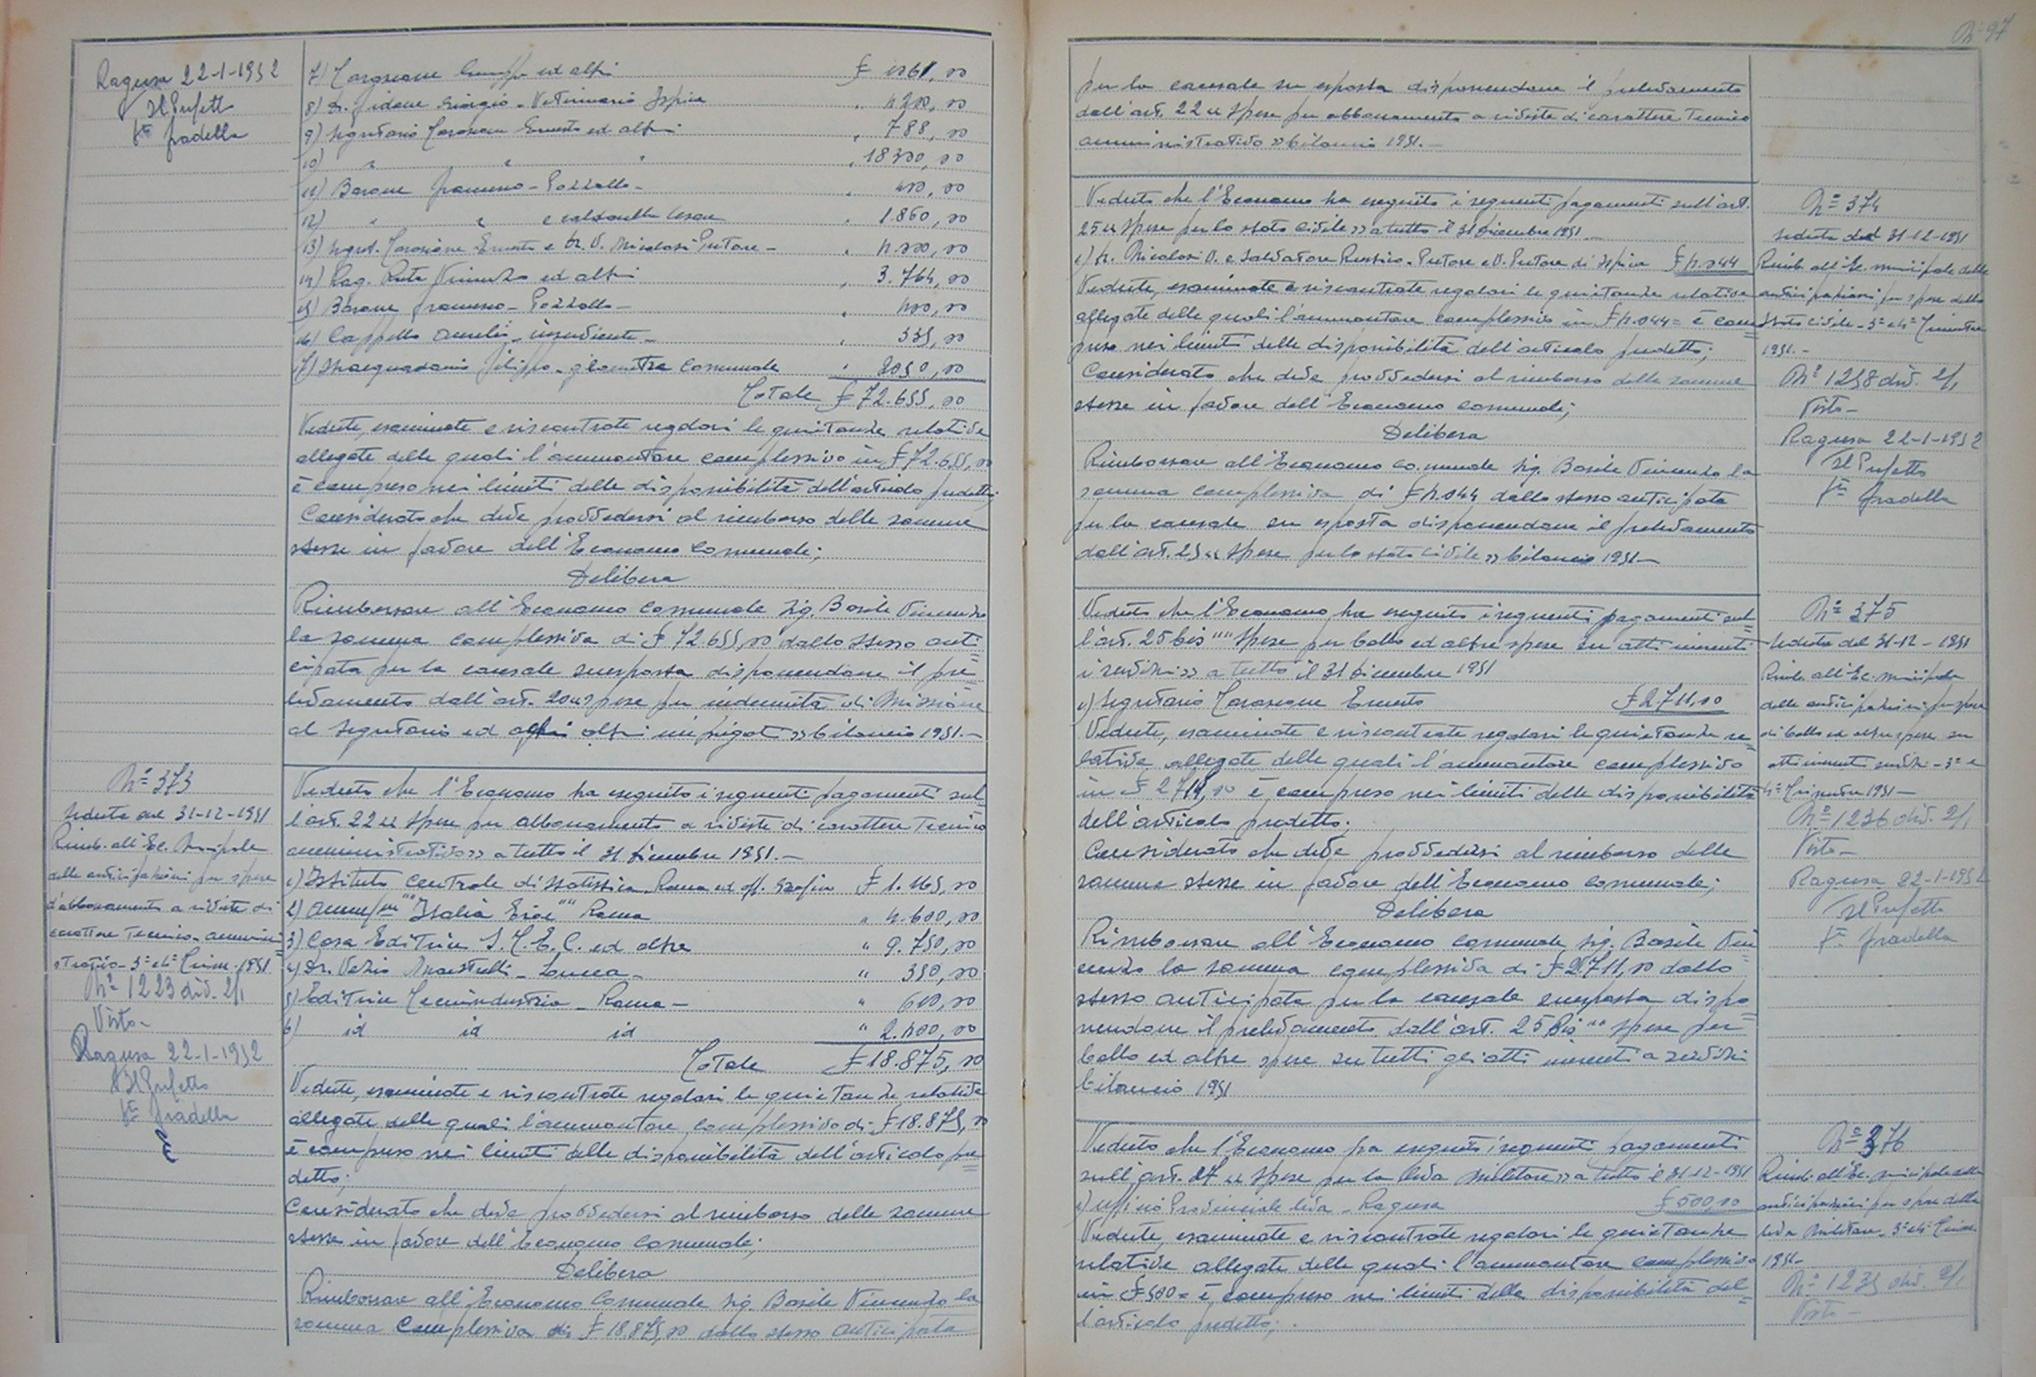 Ragusa 22-1-1952
Il Prefetto
fto Gradella
ed altri £
8) Dr. Giorgio - Veterinario Ispica " 4200,00
9) Segretario Ernesto ed altri " 788,00
10) " " " " 18300,00
11) Barone Francesco - Pozzallo - " 400,00
12) " " e " 1.860,00
13) Segret. Ernesto e Dr. V. Nicolosi - Pretore -
14) Rag. Vincenzo ed altri " 3.764,00
15) Barone Francesco - Pozzallo - " 400,00
16) Cappello - inserviente - " 335,00
17) Filippo - geometra Comunale "
Totale £ 72.655,00
Vedute, esaminate e riscontrate regolari le quietanze relative
allegate delle quali l'ammontare complessivo in £ 72.655,00
è compreso nei limiti delle disponibilità dell'articolo predetto;
Considerato che deve provvedersi al rimborso delle somme
stesse in favore dell'Economo Comunale;
Delibera
Rimborsare all'Economo Comunale Sig. Basile Vincenzo
la somma complessiva di £ 72.655,00 dallo stesso anti=
cipata per la causale suesposta disponendone il pre=
levamento dall'art. 20 "spese per indennità di missione
al Segretario ed altri impiegati" bilancio 1951.-
N° 373
Seduta del 31-12-1951
Rimb. all'Ec. Municipale
delle anticipazioni per spese
d'abbonamento a riviste di
carattere Tecnico-amminis=
trativo - 3° e 4° Trim. 1951
N° 1223 div. 2/1
Visto -
Ragusa 22-1-1952
Il Prefetto
fto Gradella
Veduto che l'Economo ha eseguito i seguenti pagamenti sul=
l'art. 22 "Spese per abbonamento a riviste di carattere Tecnico
amministrativo" a tutto il 31 Dicembre 1951.-
1) Istituto Centrale di Statistica - Roma ed £ 1.165,00
2) "Italia Roma " 4.600,00
3) Casa Editrice ed altre " 9.750,00
4) Dr. - Lucca - " 350,00
5) Editrice Tecnindustria - Roma - " 600,00
6) id id id " 2.400,00
Totale £ 18.875,00
Vedute, esaminate e riscontrate regolari le quietanze relative
allegate delle quali l'ammontare complessivo di £ 18.875,00
è compreso nei limiti delle disponibilità dell'articolo pre=
detto;
Considerato che deve provvedersi al rimborso delle somme
stesse in favore dell'Economo Comunale;
Delibera
Rimborsare all'Economo Comunale Sig. Basile Vincenzo la
somma complessiva di £ 18.875,00 dallo stesso anticipata
N° 97
per la causale su esposta disponendone il prelevamento
dall'art. 22 "Spese per abbonamento a riviste di carattere Tecnico
amministrativo" bilancio 1951.-
Veduto che l'Economo ha eseguito i seguenti pagamenti sull'art.
25 "Spese per lo stato civile" a tutto il 31 Dicembre 1951 -
1) Dr. Nicolosi V. e Salvatore - Pretore e V. Pretore di Ispica £ 4.044
Vedute, esaminate e riscontrate regolari le quietanze relative
allegate delle quali l'ammontare complessivo in £ 4.044= è com=
preso nei limiti delle disponibilità dell'articolo predetto;
Considerato che deve provvedersi al rimborso delle somme
stesse in favore dell'Economo Comunale;
Delibera
Rimborsare all'Economo Comunale Sig. Basile Vincenzo la
somma complessiva di £ 4.044 dallo stesso anticipata
per la causale su esposta disponendone il prelevamento
dall'art. 25 "Spese per lo stato civile" bilancio 1951 -
N° 374
Seduta del 31-12-1951
Rimb. all'Ec. municipale delle
anticipazioni per spese dello
Stato civile - 3° e 4° Trimestre
1951.-
N° 1238 div. 2/1
Visto -
Ragusa 22-1-1952
Il Prefetto
fto Gradella
Veduto che l'Economo ha eseguito i seguenti pagamenti sul=
l'art. 25 bis "Spese per bollo ed altre spese su atti inerenti
i servizi" a tutto il 31 Dicembre 1951
1) Segretario Ernesto £ 2.711,00
Vedute, esaminate e riscontrate regolari le quietanze re=
lative allegate delle quali l'ammontare complessivo
in £ 2711,00 è compreso nei limiti delle disponibilità
dell'articolo predetto;
Considerato che deve provvedersi al rimborso delle
somme stesse in favore dell'Economo Comunale;
Delibera
Rimborsare all'Economo Comunale Sig. Basile Vin=
cenzo la somma complessiva di £ 2.711,00 dallo
stesso anticipata per la causale suesposta dispo=
nendone il prelevamento dall'art. 25 bis "Spese per
bollo ed altre spese su tutti gli atti inerenti a servizi
bilancio 1951
N° 375
Seduta del 31-12-1951
Rimb. all'Ec. municipale
delle anticipazioni per spese
di bollo ed altre spese su
atti inerenti servizi - 3° e
4° Trimestre 1951 -
N° 1236 div. 2/1
Visto -
Ragusa 22-1-1952
Il Prefetto
fto Gradella
Veduto che l'Economo ha eseguito i seguenti pagamenti
sull'art. 27 "Spese per la leva militare" a tutto il 31-12-1951
1) Ufficio Provinciale leva - Ragusa £ 500,00
Vedute, esaminate e riscontrate regolari le quietanze
relative allegate delle quali l'ammontare complessivo
in £ 500= è compreso nei limiti delle disponibilità del=
l'articolo predetto;
N° 376
Rimb. all'Ec. municipale delle
anticipazioni per spese della
leva militare - 3° e 4° Trim.
1951 -
N° 1235 div. 2/1
Visto -